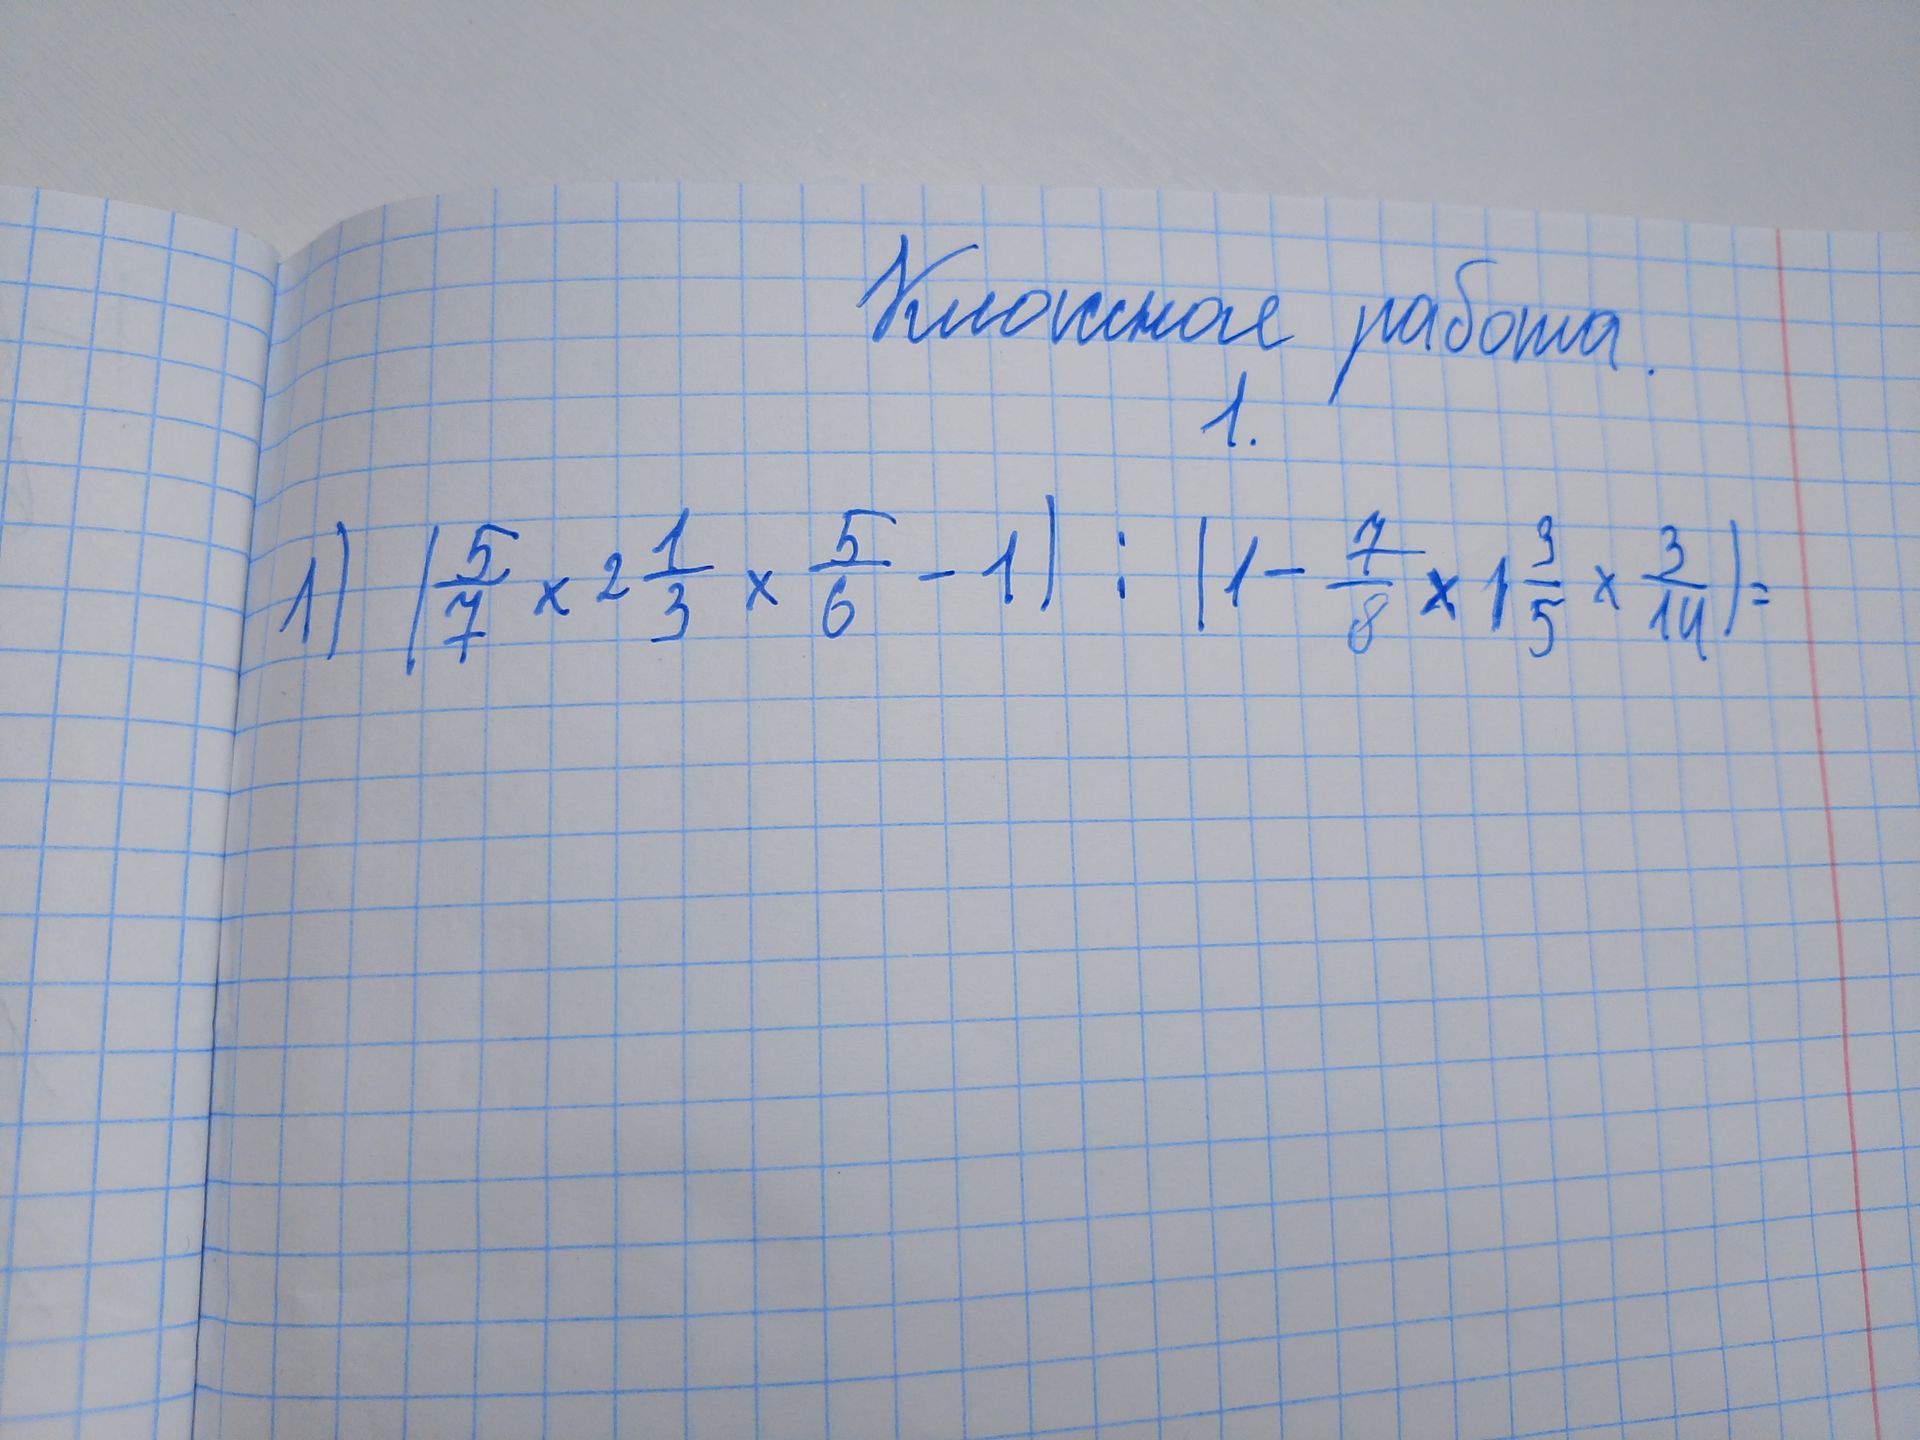 Классная работа.
1.
1) (5/7 × 2 1/3 × 5/6 - 1) : (1 - 7/8 × 1 3/5 × 3/14) =